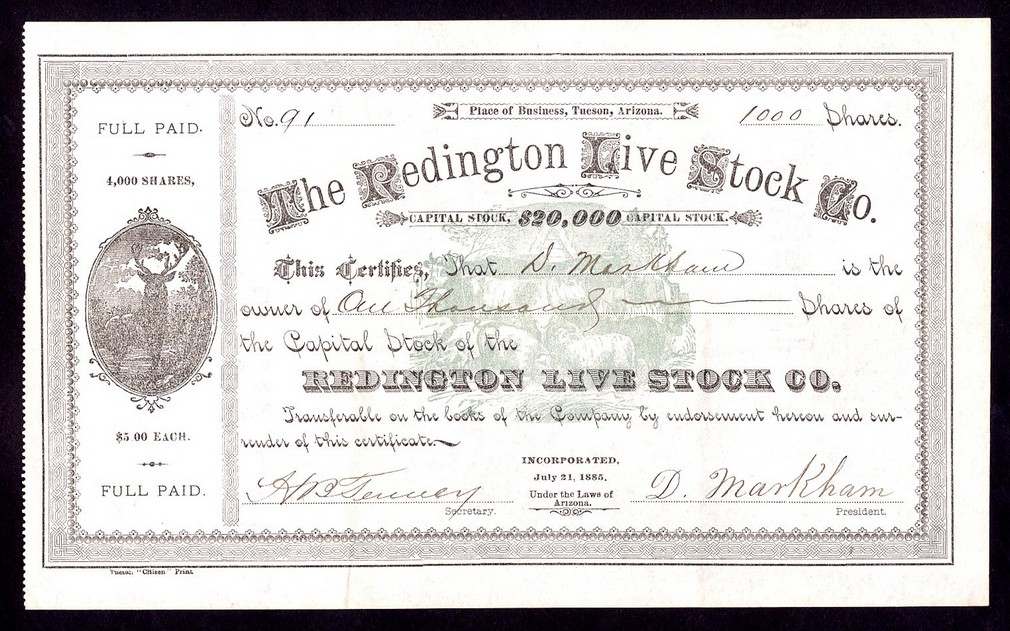 FULL PAID.
4,000 SHARES,
$5 00 EACH.
FULL PAID.
No. 91
Place of Business, Tucson, Arizona.
1000 Shares.
The Redington Live Stock Co.
CAPITAL STOCK, $20,000 CAPITAL STOCK.
This Certifies, That D. Markham is the
owner of One Thousand Shares of
the Capital Stock of the
REDINGTON LIVE STOCK CO.
Transferable on the books of the Company by endorsement hereon and sur-
render of this certificate
INCORPORATED,
July 21, 1885,
Under the Laws of
Arizona.
H B Tenney
Secretary.
D. Markham
President.
Tucson, "Citizen" Print.